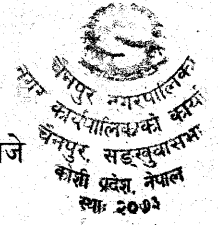 चैनपुर नगरपालिका
नगर कार्यपालिकाको कार्या
चैनपुर, सङ्खुवासभा
कोशी प्रदेश, नेपाल
स्थाः २०७३
जे